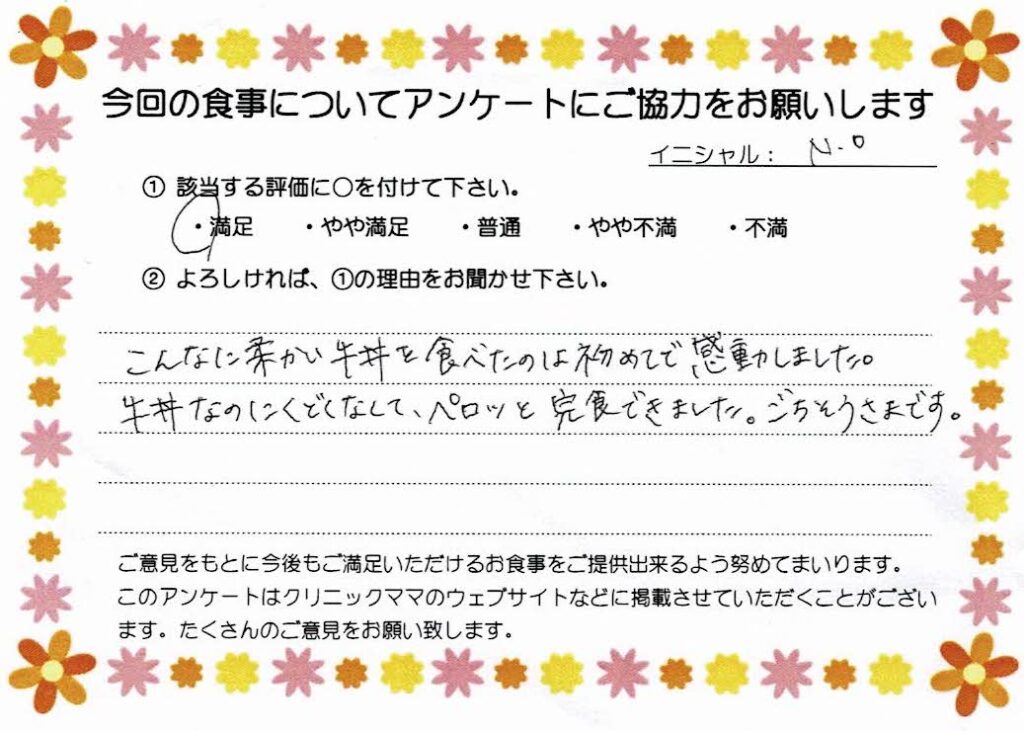 今回の食事についてアンケートにご協力をお願いします
イニシャル： N.O
① 該当する評価に○を付けて下さい。
・満足 ・やや満足 ・普通 ・やや不満 ・不満
② よろしければ、①の理由をお聞かせ下さい。
こんなに柔かい牛丼を食べたのは初めてで感動しました。
牛丼なのにくどくなくて、ペロッと完食できました。ごちそうさまです。
ご意見をもとに今後もご満足いただけるお食事をご提供出来るよう努めてまいります。
このアンケートはクリニックママのウェブサイトなどに掲載させていただくことがござい
ます。たくさんのご意見をお願い致します。